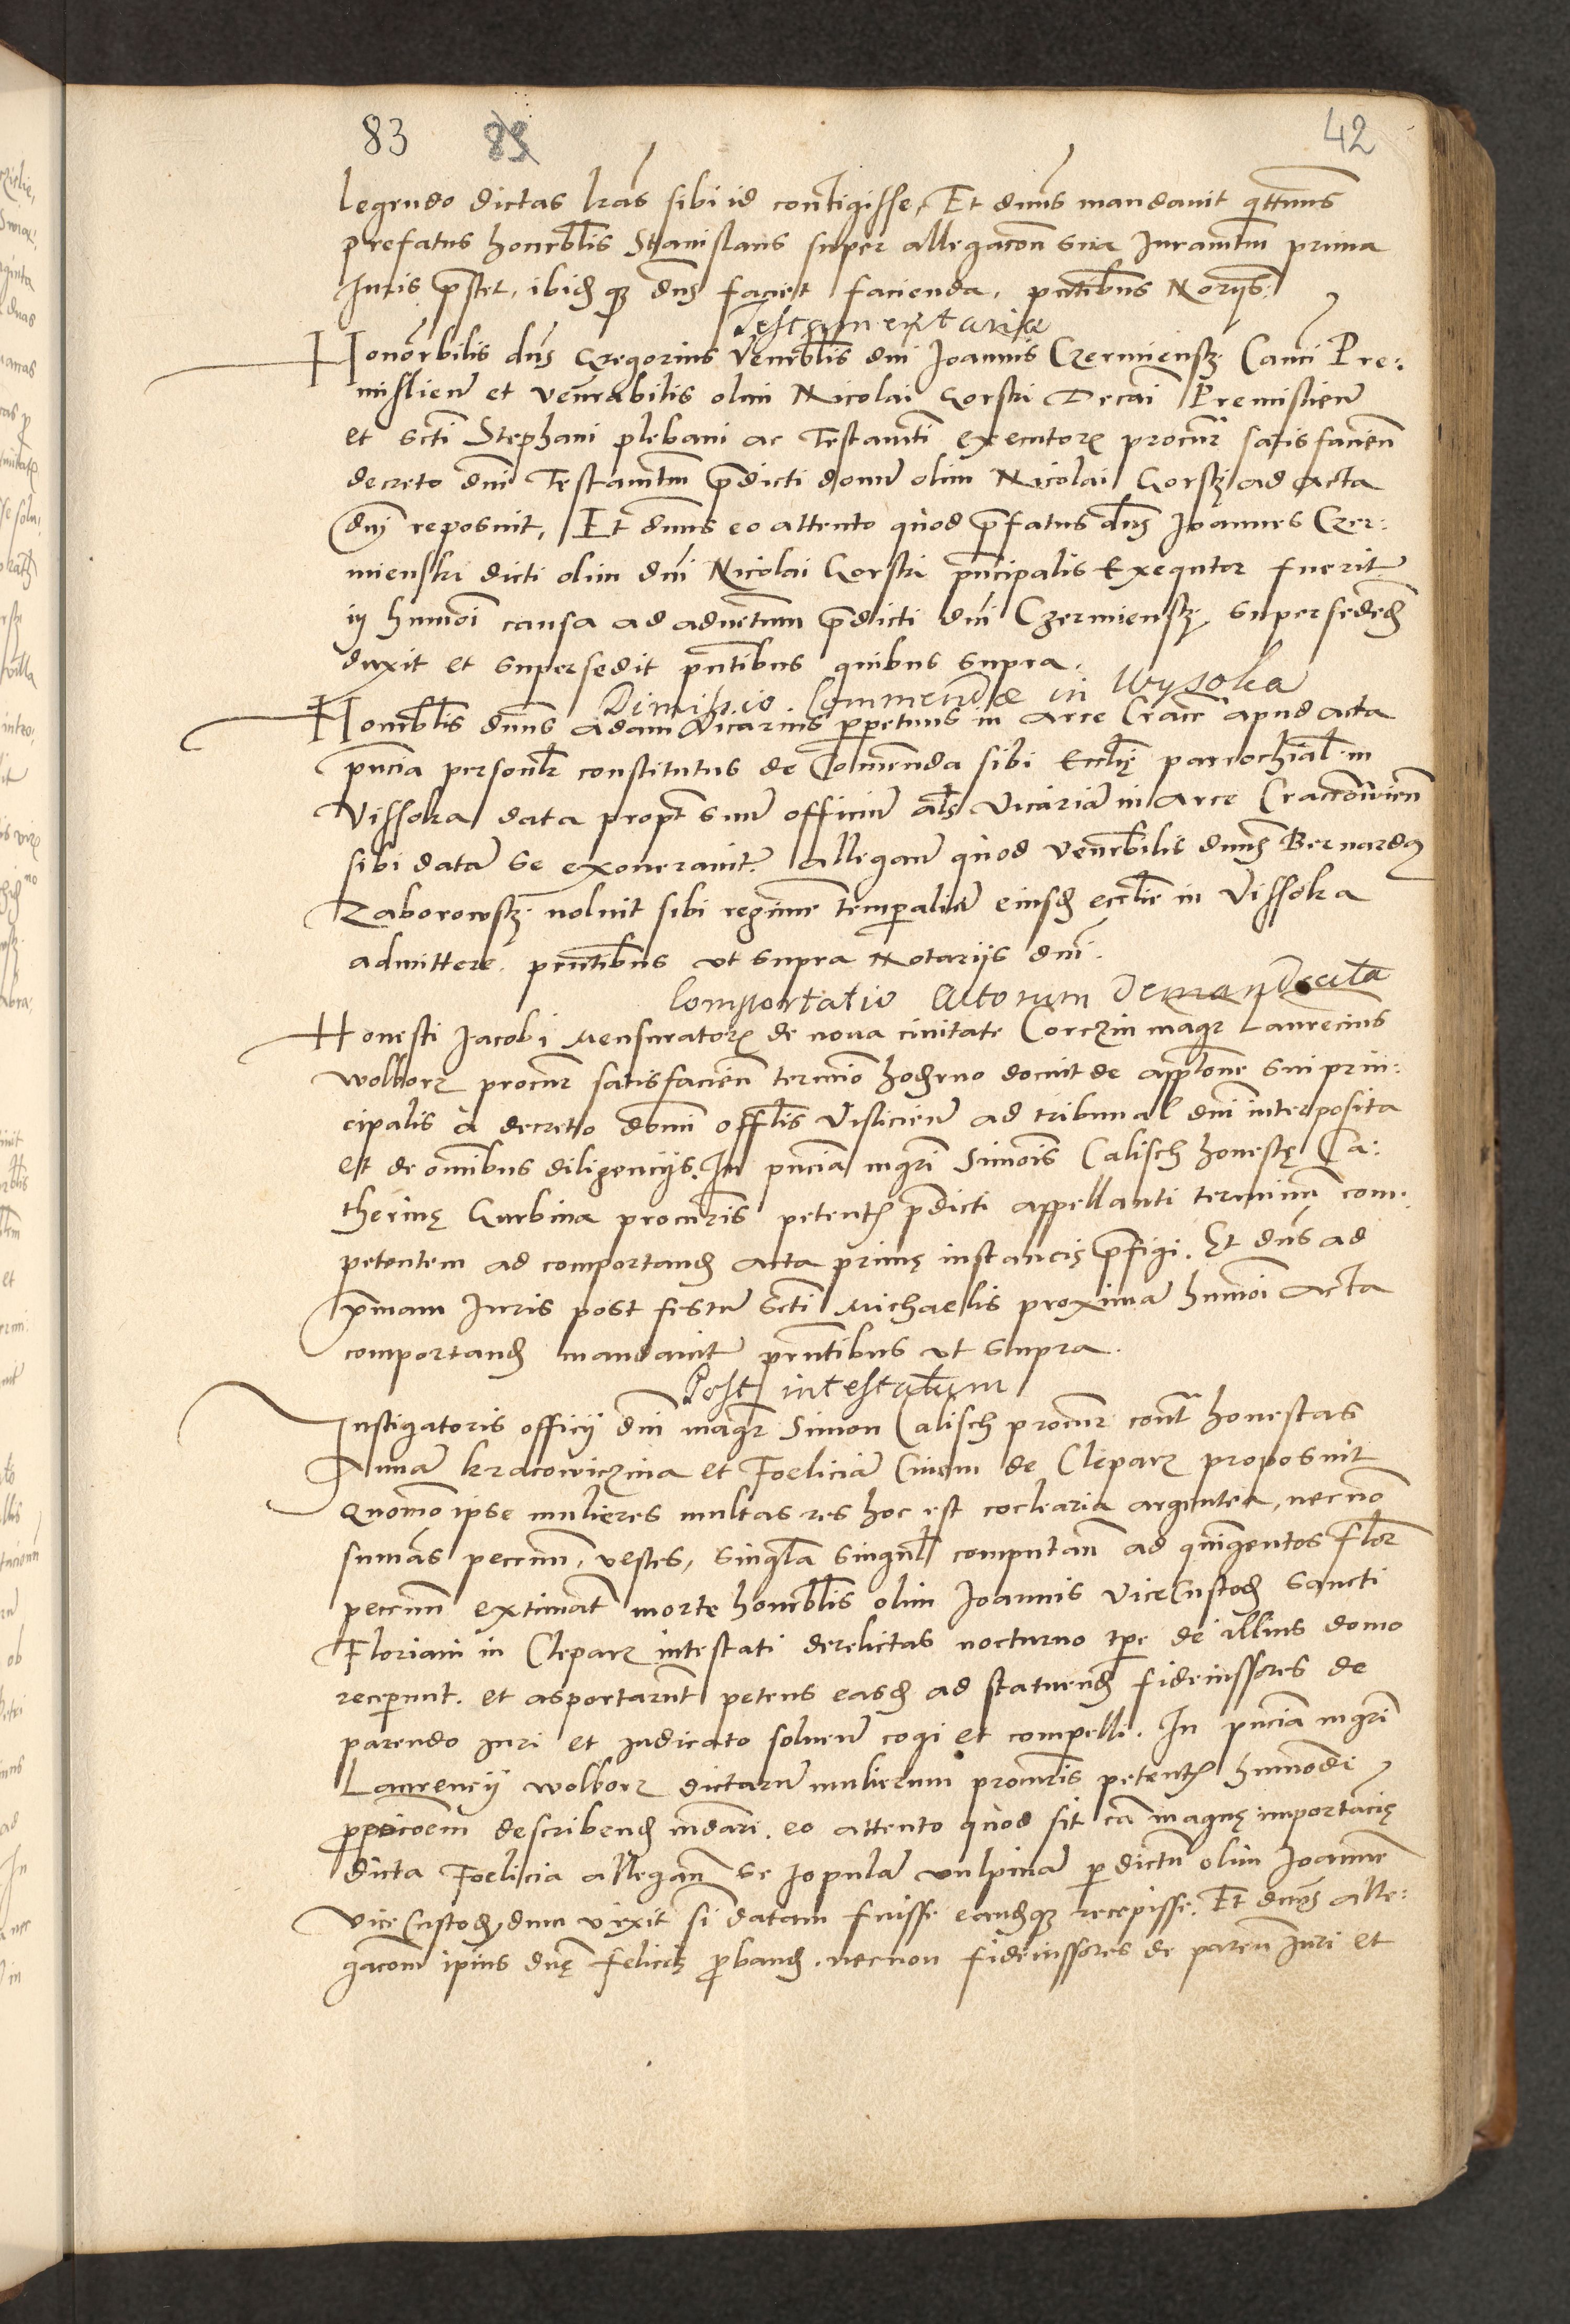 83 83 42
legendo dictas lras sibi id contigisse, Et dnus mandavit qttenus
prefatus honrblis Stanislaus super allegacon sua Iuramtm prima
Iuris prstet, ibidq dns faciet facienda, pntibus Norys.
Testamentaria
Honorbilis dns Gregorius Venrblis dni Joannis Czermiensky Canci Pre:
mislien et venerabilis olim Nicolai Gorski Decai Premislien
et Scti Stephani plebani ac Testamti executoris procur satisfacien
decreto dni Testamtm prdicti domi olim Nicolai Gorsky ad acta
dni reposuit, Et dnus eo attento quod prfatus dns Joannes Czer:
mienski dicti olim dni Nicolai Gorski principalis Exequtor fuerit
in hmoi causa ad adventum prdicti dni Czermiensky supersedend
duxit et supersedit pntibus quibus supra.
Dimissio Commendae in Wysoka
Honrblis dnus Adam Vicarius perpetuus in arce Cracc apud acta
pncia personlr constitutus de Comenda sibi Ecclie parrochial in
Vissoka data propt suu officiu als Vicariã in arce Cracovien
sibi datã se exoneravit. allegan quod venrbilis dnus Bernardus
Zaborowsky noluit sibi regimine temporaliu eiusd ecclie in Vissoka
admittere. pntibus ut supra Notarijs dni.
Comportatio Actorum Demandata
Honesti Jacobi Mensuratoris de nova civitate Corczin magr Laurecius
wolborz procur satisfacien termio hodierno docuit de applone sui prin:
cipalis à decreto domi offlis Visliciens ad tribunal dni interposita
et de omibus diligencijs. In pncia mgri Simois Calisch honeste Ca:
therine Gurbina procuris petents prdicti appellanti terminu com:
petentem ad comportand acta prime instancie prfigi. Et dns ad
prmam Iuris post festu Scti Michaelis proximã hmoi acta
comportand mandavit prntibus ut supra.
Post intestatum
Instigatoris officij dni magr Simon Calisch procur contr honestas
Annã kracowiczina et Foeliciã Civem de Cleparz proposuit
quomo ipse mulieres multas res hoc est coclearia argentea, necno
sumas peccun, vestes, singla singul computan ad quingentos flor
peccun extimat morte honrblis olim Joannis ViceCustod Sancti
Floriani in Cleparz intestati derelictas nocturno tpe de illius domo
receperunt. et asportarunt petens easd ad statuend fideiussores de
parendo Iuri et Iudicato solven cogi et compelli. In pncia mgri
Laurencij wolborz dictarum mulierum procuris petents hmodi
ppoicoem describend mdari. eo attento quod sit ca magne importacie
dicta Foelicia allegan se Jopulã vulpinã per dictu olim Joanne
vice Custod, dum vixit si datam fuisse eandqz recepisse. Et dnus alle:
gacom ipius dne Felicie proband, necnon fideiussores de paren Iuri et